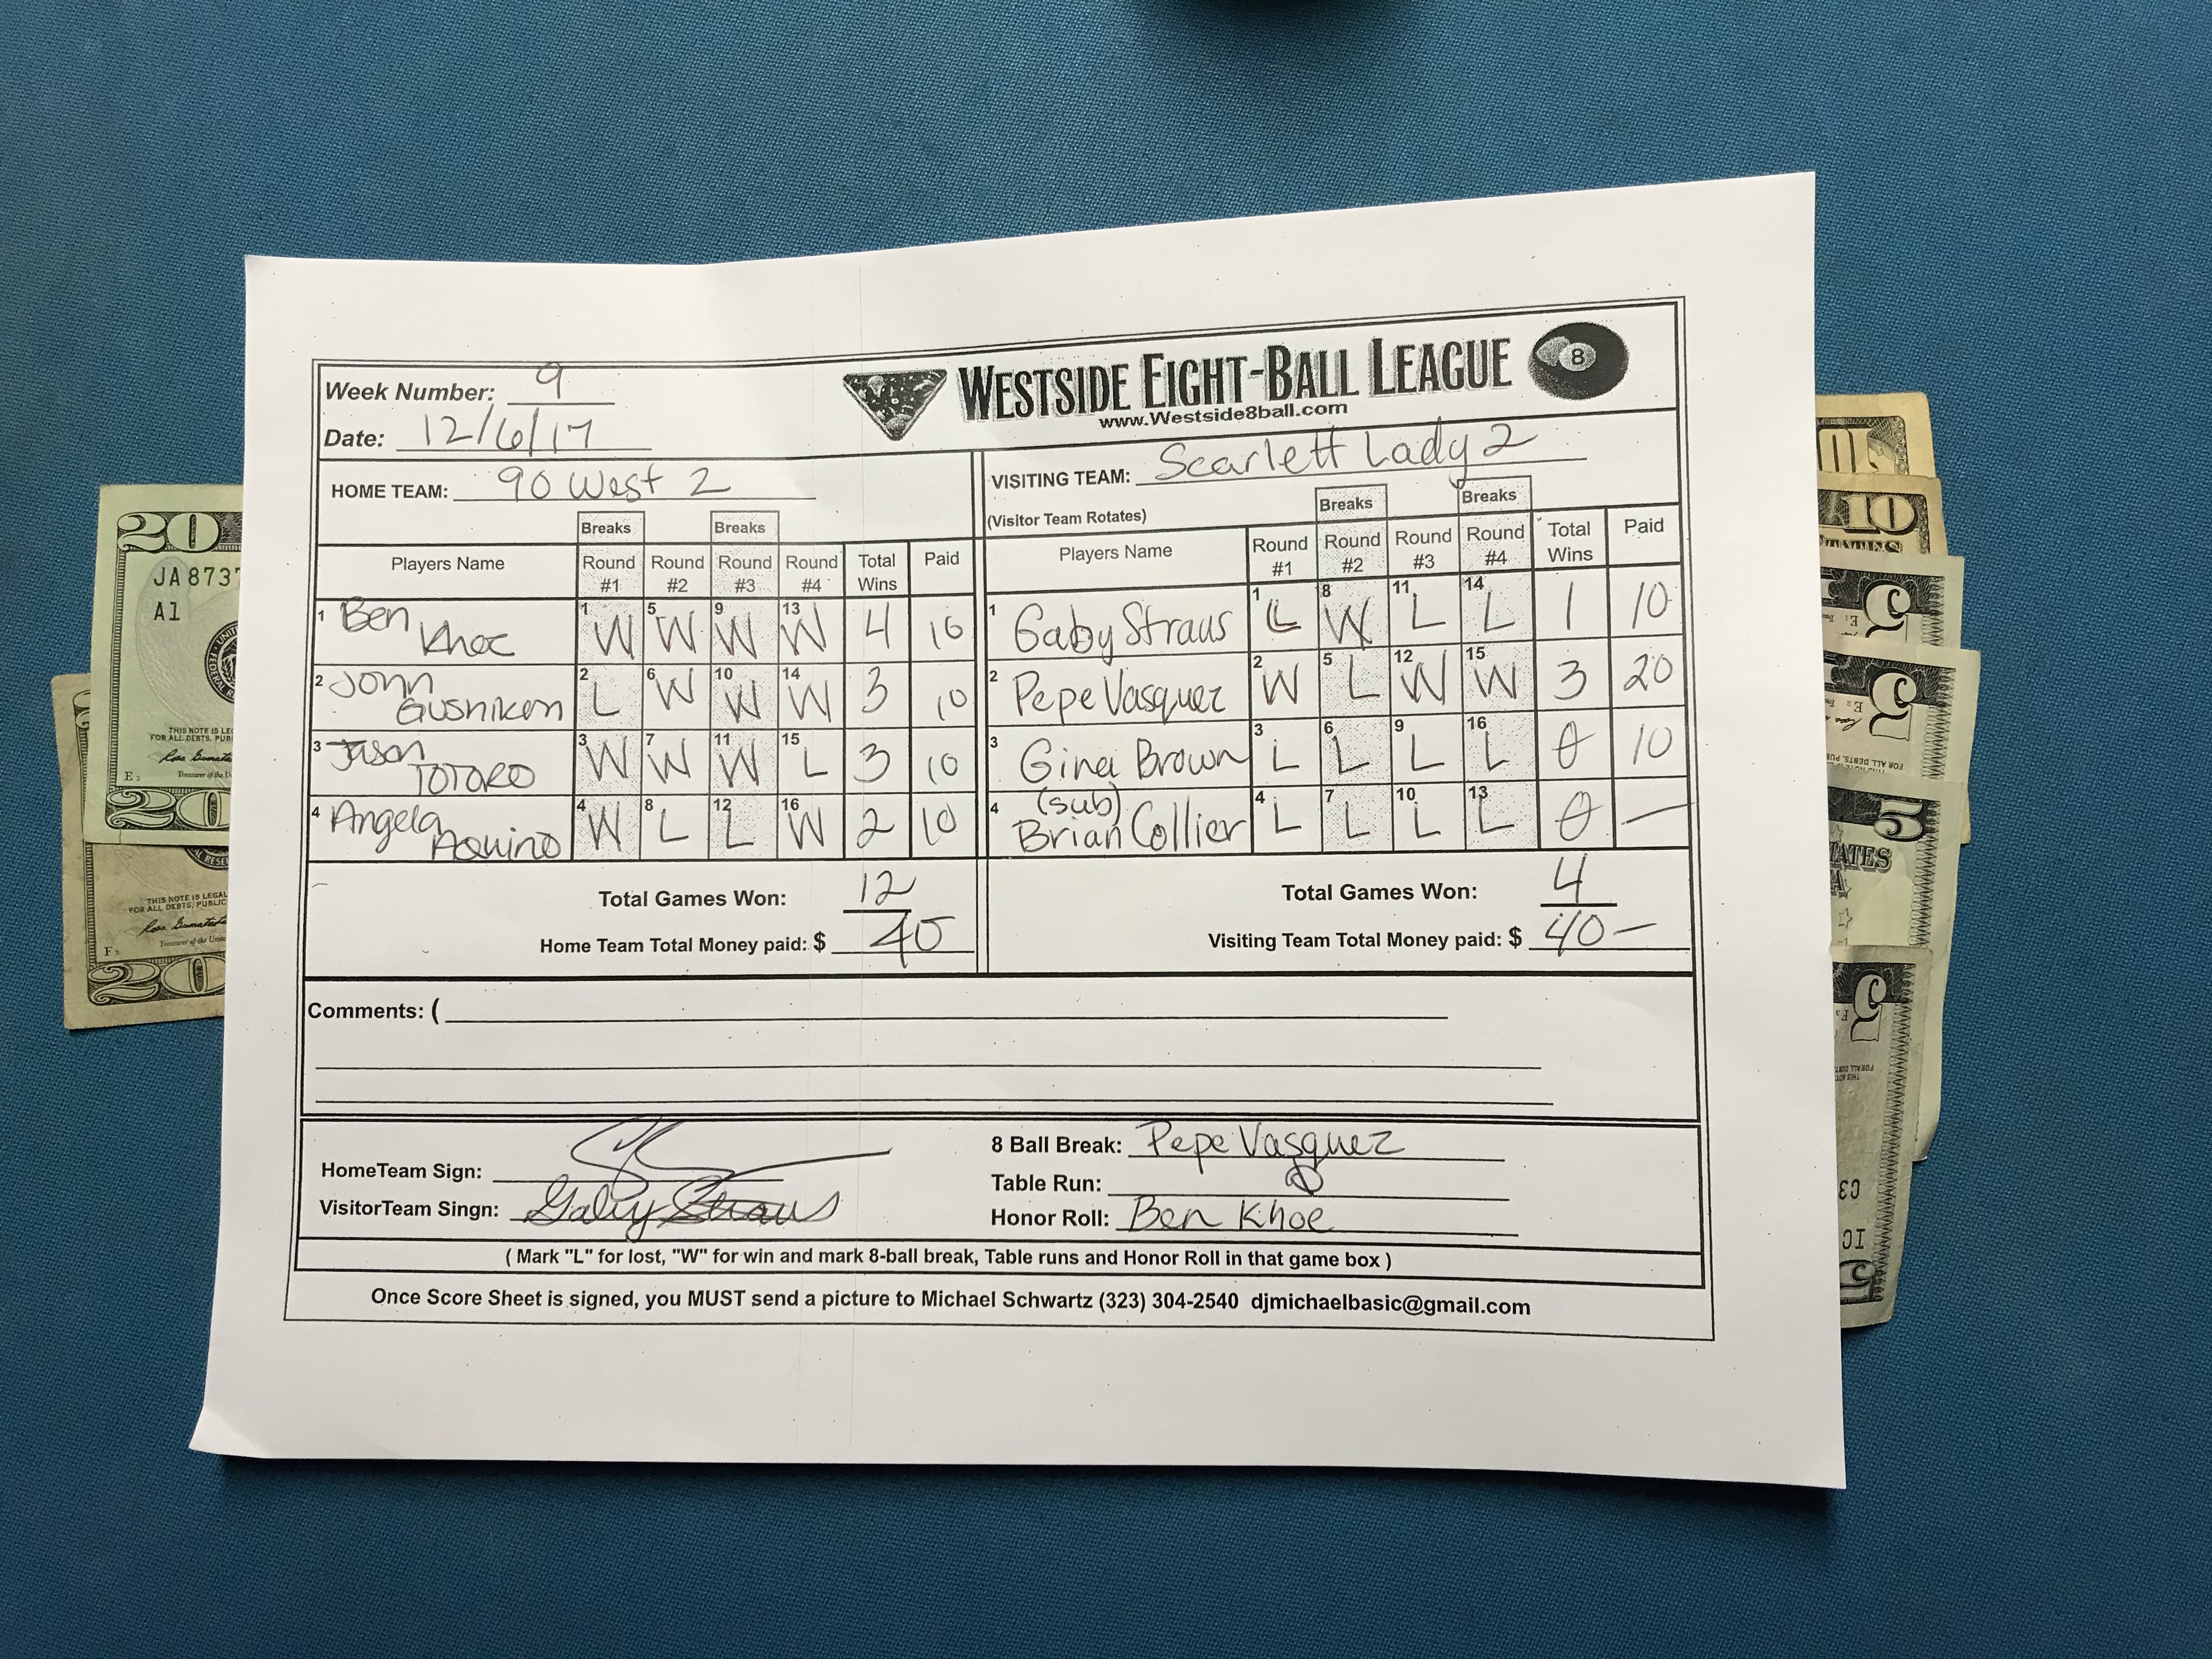 Week Number: 9
Date: 12/6/17
WESTSIDE EIGHT-BALL LEAGUE
8
www.Westside8ball.com
HOME TEAM: 90 West 2
VISITING TEAM: Scarlett Lady 2
(Visitor Team Rotates)
Breaks Breaks
Breaks Breaks
Players Name Round #1 Round #2 Round #3 Round #4 Total Wins Paid
1 Ben Khoe 1 W 5 W 9 W 13 W 4 10
2 John Gushiken 2 L 6 W 10 W 14 W 3 10
3 Jason TOTORO 3 W 7 W 11 W 15 L 3 10
4 Angela Aquino 4 W 8 L 12 L 16 W 2 10
Total Games Won: 12
Home Team Total Money paid: $ 40
Players Name Round #1 Round #2 Round #3 Round #4 Total Wins Paid
1 Gaby Straus 1 L 8 W 11 L 14 L 1 10
2 Pepe Vasquez 2 W 5 L 12 W 15 W 3 20
3 Gina Brown 3 L 6 L 9 L 16 L 0 10
4 (sub) Brian Collier 4 L 7 L 10 L 13 L 0 —
Total Games Won: 4
Visiting Team Total Money paid: $ 40 —
Comments: (
HomeTeam Sign:
VisitorTeam Singn: Gaby Straus
8 Ball Break: Pepe Vasquez
Table Run:
Honor Roll: Ben Khoe
( Mark "L" for lost, "W" for win and mark 8-ball break, Table runs and Honor Roll in that game box )
Once Score Sheet is signed, you MUST send a picture to Michael Schwartz (323) 304-2540 djmichaelbasic@gmail.com
20
JA 8737
A1
THIS NOTE IS LE
FOR ALL DEBTS, PUB
E3
20
THIS NOTE IS LEGAL
FOR ALL DEBTS, PUBLIC
Treasurer of the Unite
F3
20
10
10
5
5
5
TATES
A
5
5